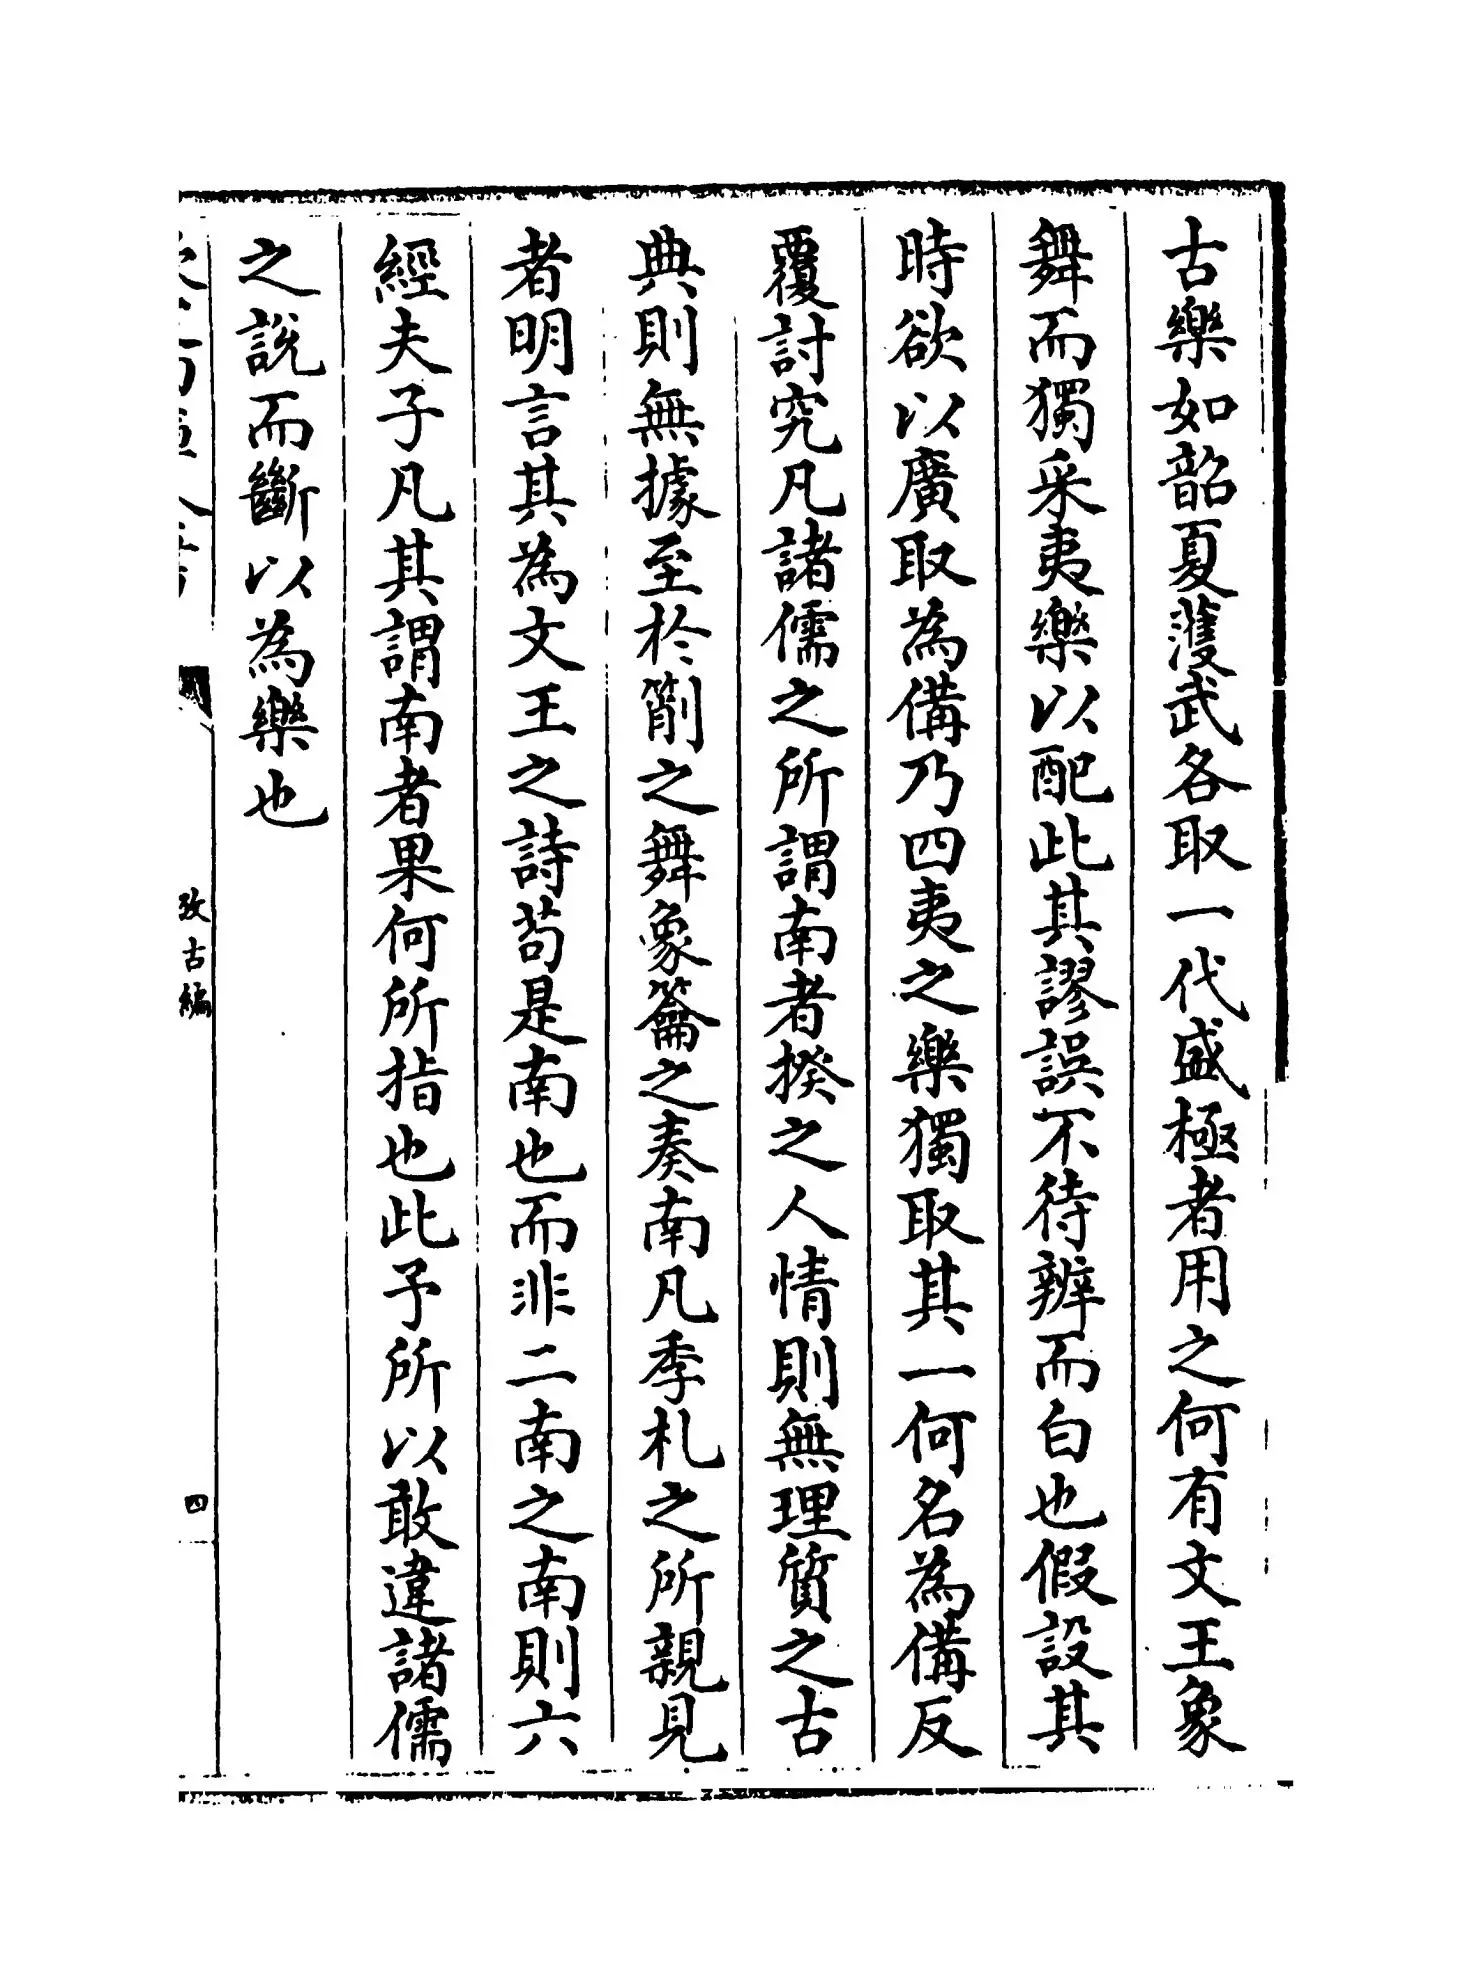 古樂如韶夏濩武各取一代盛極者用之何有文王象
舞而獨采夷樂以配此其謬誤不待辨而白也假設其
時欲以廣取為備乃四夷之樂獨取其一何名為備反
覆討究凡諸儒之所謂南者揆之人情則無理質之古
典則無據至於箾之舞象籥之奏南凡季札之所親見
者明言其為文王之詩茍是南也而非二南之南則六
經夫子凡其謂南者果何所指也此予所以敢違諸儒
之說而斷以為樂也
攷古編
四